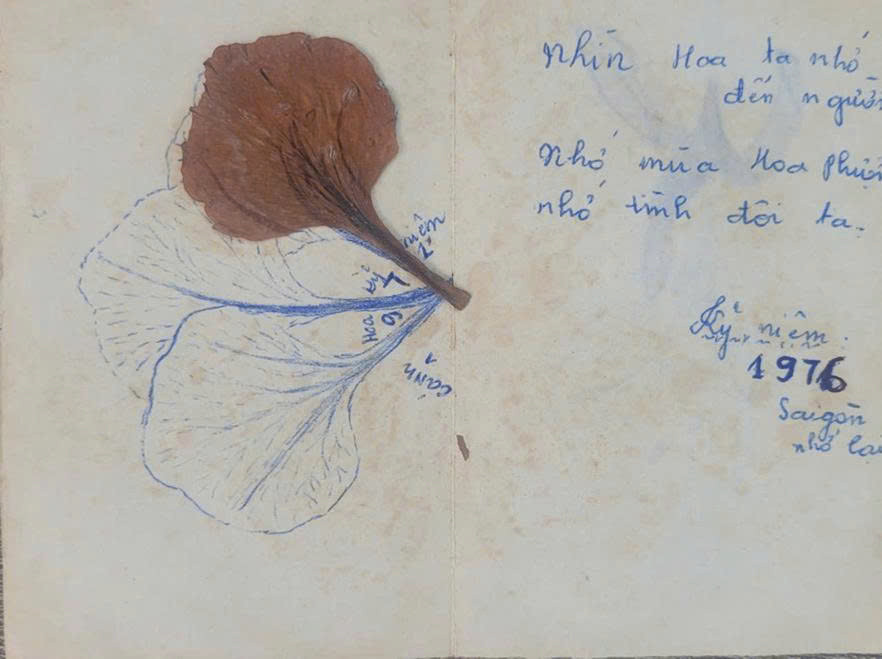 Nhìn Hoa ta nhớ
đến người
Nhớ mùa Hoa Phượn
nhớ tình đôi ta.
Kỷ niệm.
1976
Saigòn
nhớ lại
cánh Hoa kỷ niệm
1 9 7